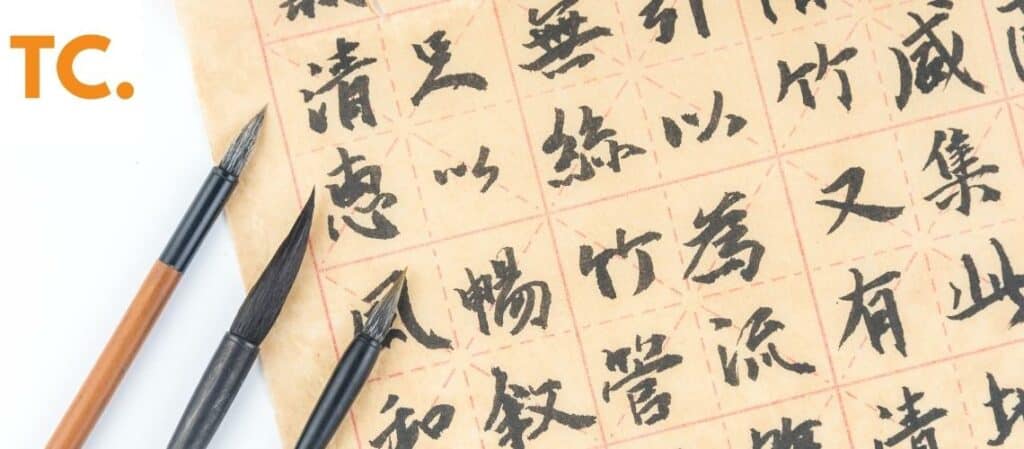 TC.
咸集此地
竹又有清
引以為流
無絲竹管
足以暢敘
清惠風和